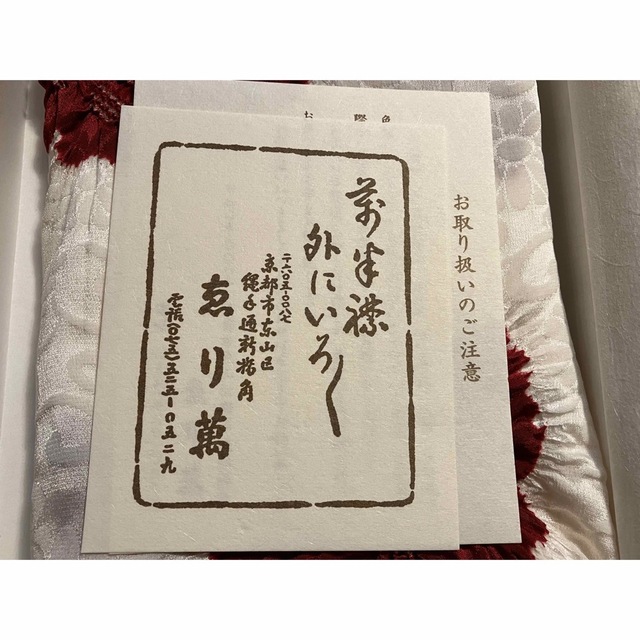 萬半襟
外にいろ〱
〒六〇五-〇〇八七
京都市東山区
縄手通新橋角
ゑり萬
電話(〇七五)五二五-〇五二九
お取り扱いのご注意